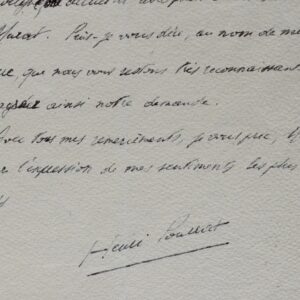 Murat. Puis-je vous dire, au nom de me
que nous vous restons très reconnaissants
ainsi notre demande.
Avec tous mes remerciements, je vous prie,
l'expression de mes sentiments les plus
Henri Pourrat